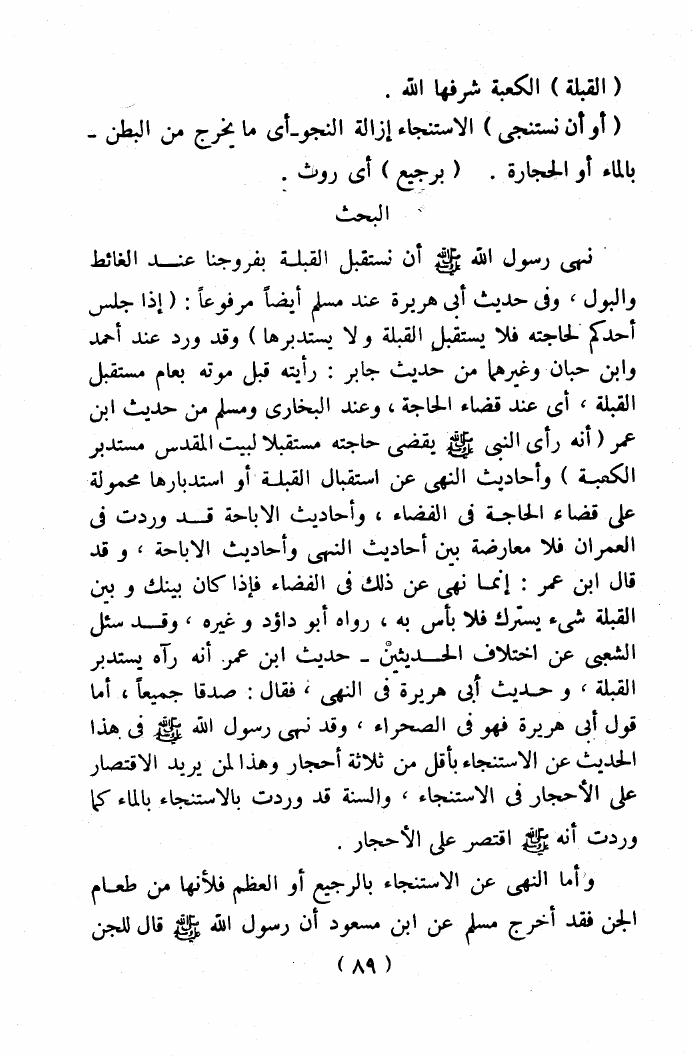 ( القبلة ) الكعبة شرفها الله .
( أو أن نستنجى ) الاستنجاء إزالة النجو ـ أى ما يخرج من البطن ـ
بالماء أو الحجارة . ( برجيع ) أى روث .
البحث
نهى رسول الله ﷺ أن نستقبل القبلة بفروجنا عند الغائط
والبول ، وفى حديث أبى هريرة عند مسلم أيضاً مرفوعاً : ( إذا جلس
أحدكم لحاجته فلا يستقبل القبلة ولا يستدبرها ) وقد ورد عند أحمد
وابن حبان وغيرهما من حديث جابر : رأيته قبل موته بعام مستقبل
القبلة ، أى عند قضاء الحاجة ، وعند البخارى ومسلم من حديث ابن
عمر ( أنه رأى النبى ﷺ يقضى حاجته مستقبلا لبيت المقدس مستدبر
الكعبة ) وأحاديث النهى عن استقبال القبلة أو استدبارها محمولة
على قضاء الحاجة فى الفضاء ، وأحاديث الاباحة قد وردت فى
العمران فلا معارضة بين أحاديث النهى وأحاديث الاباحة ، و قد
قال ابن عمر : إنما نهى عن ذلك فى الفضاء فإذا كان بينك و بين
القبلة شىء يسترك فلا بأس به ، رواه أبو داؤد و غيره ، وقد سئل
الشعبى عن اختلاف الحديثين ـ حديث ابن عمر أنه رآه يستدبر
القبلة ، و حديث أبى هريرة فى النهى ، فقال : صدقا جميعاً ، أما
قول أبى هريرة فهو فى الصحراء ، وقد نهى رسول الله ﷺ فى هذا
الحديث عن الاستنجاء بأقل من ثلاثة أحجار وهذا لمن يريد الاقتصار
على الأحجار فى الاستنجاء ، والسنة قد وردت بالاستنجاء بالماء كما
وردت أنه ﷺ اقتصر على الأحجار .
وأما النهى عن الاستنجاء بالرجيع أو العظم فلأنها من طعام
الجن فقد أخرج مسلم عن ابن مسعود أن رسول الله ﷺ قال للجن
( ٨٩ )